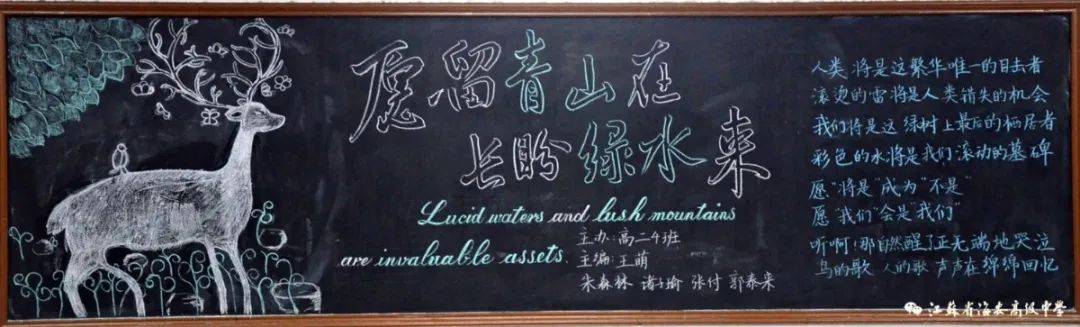 愿留青山在
长盼绿水来
Lucid waters and lush mountains
are invaluable assets.
主办：高二4班
主编：王萌
朱森林 诸子瑜 张付 郭泰来
人类 将是这繁华唯一的目击者
滚烫的雷将是人类错失的机会
我们将是这绿树上最后的栖居者
彩色的水将是我们滚动的墓碑
愿“将是”成为“不是”
愿“我们”会是“我们”
听啊！那自然醒了正无端地哭泣
鸟的歌 人的歌 声声在绵绵回忆
江苏省海安高级中学